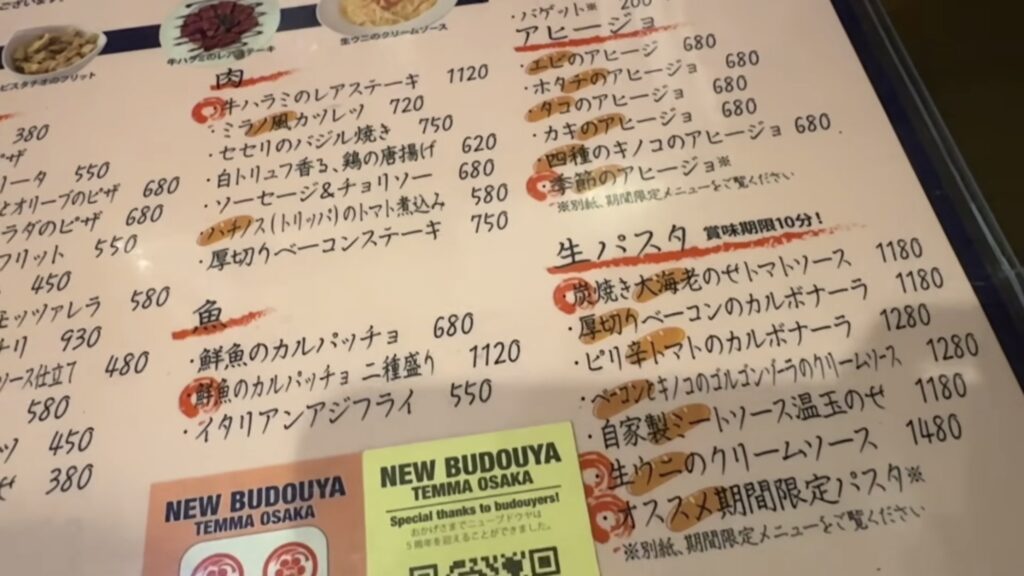 ございます。
ピスタチオのフリット
牛ハラミのレアステーキ
生ウニのクリームソース
380
ピザ
リータ 550
とオリーブのピザ 680
ラダのピザ 680
フリット 550
450
モッツァレラ 580
930
ソース仕立て 480
580
ツ 450
380
肉
牛ハラミのレアステーキ 1120
・ミラノ風カツレツ 720
・セセリのバジル焼き 750
・白トリュフ香る、鶏の唐揚げ 620
・ソーセージ&チョリソー 680
・ハチノス(トリッパ)のトマト煮込み 580
・厚切りベーコンステーキ 750
魚
・鮮魚のカルパッチョ 680
・鮮魚のカルパッチョ 二種盛り 1120
・イタリアンアジフライ 550
・バゲット※ 200
アヒージョ
・エビのアヒージョ 680
・ホタテのアヒージョ 680
・タコのアヒージョ 680
・カキのアヒージョ 680
・四種のキノコのアヒージョ 680
季節のアヒージョ※
※別紙、期間限定メニューをご覧ください
生パスタ 賞味期限10分!
炭焼き大海老のせトマトソース 1180
・厚切りベーコンのカルボナーラ 1180
・ピリ辛トマトのカルボナーラ 1280
・ベーコンとキノコのゴルゴンゾーラのクリームソース 1280
・自家製ミートソース温玉のせ 1180
生ウニのクリームソース 1480
オススメ期間限定パスタ※
※別紙、期間限定メニューをご覧ください
NEW BUDOUYA
TEMMA OSAKA
NEW BUDOUYA
TEMMA OSAKA
Special thanks to budouyers!
おかげさまでニューブドウヤは
5周年を迎えることができました。